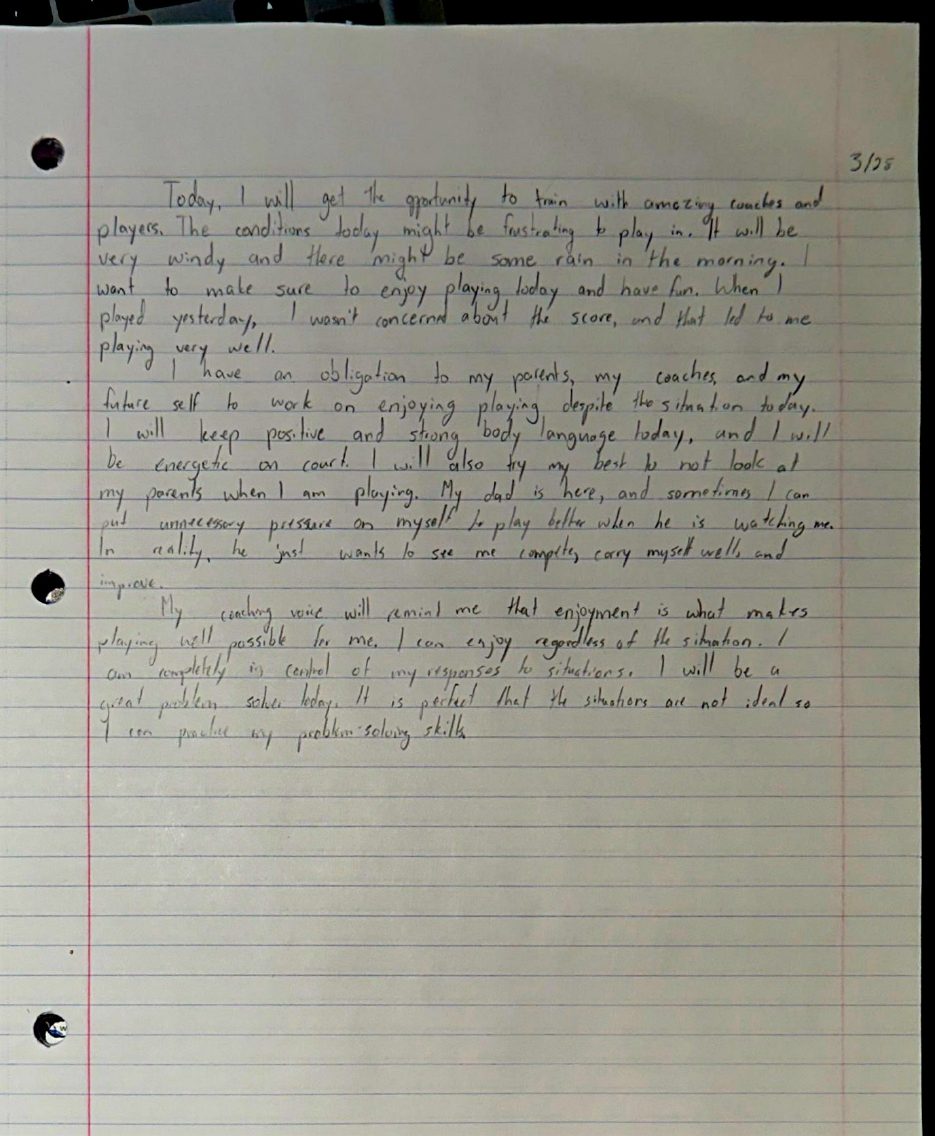 3/25
Today, I will get the opportunity to train with amazing coaches and
players. The conditions today might be frustrating to play in. It will be
very windy and there might be some rain in the morning. I
want to make sure to enjoy playing today and have fun. When I
played yesterday, I wasn't concerned about the score, and that led to me
playing very well.
I have an obligation to my parents, my coaches, and my
future self to work on enjoying playing despite the situation today.
I will keep positive and strong body language today, and I will
be energetic on court. I will also try my best to not look at
my parents when I am playing. My dad is here, and sometimes I can
put unnecessary pressure on myself to play better when he is watching me.
In reality, he just wants to see me compete, carry myself well, and
improve.
My coaching voice will remind me that enjoyment is what makes
playing well possible for me. I can enjoy regardless of the situation. I
am completely in control of my responses to situations. I will be a
great problem solver today. It is perfect that the situations are not ideal so
I can practice my problem-solving skills.